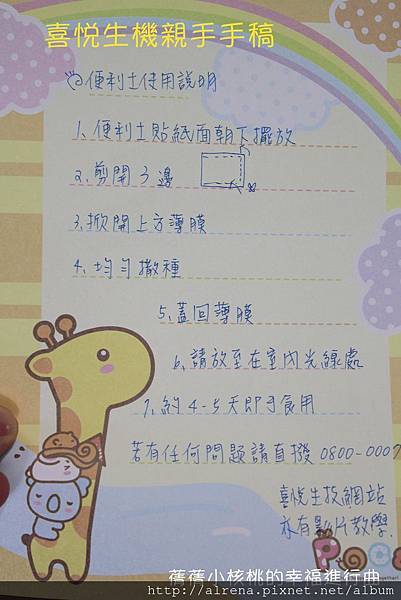 喜悅生機親手手稿
便利土使用說明
1、便利土貼紙面朝下擺放
2、剪開3邊
3、掀開上方薄膜
4、均勻撒種
5、蓋回薄膜
6、請放至在室內光線處
7、約4-5天即可食用
若有任何問題請直撥 0800-0007
喜悅生技網站
亦有影片教學.
舊舊小核桃的幸福進行曲
http://alrena.pixnet.net/album